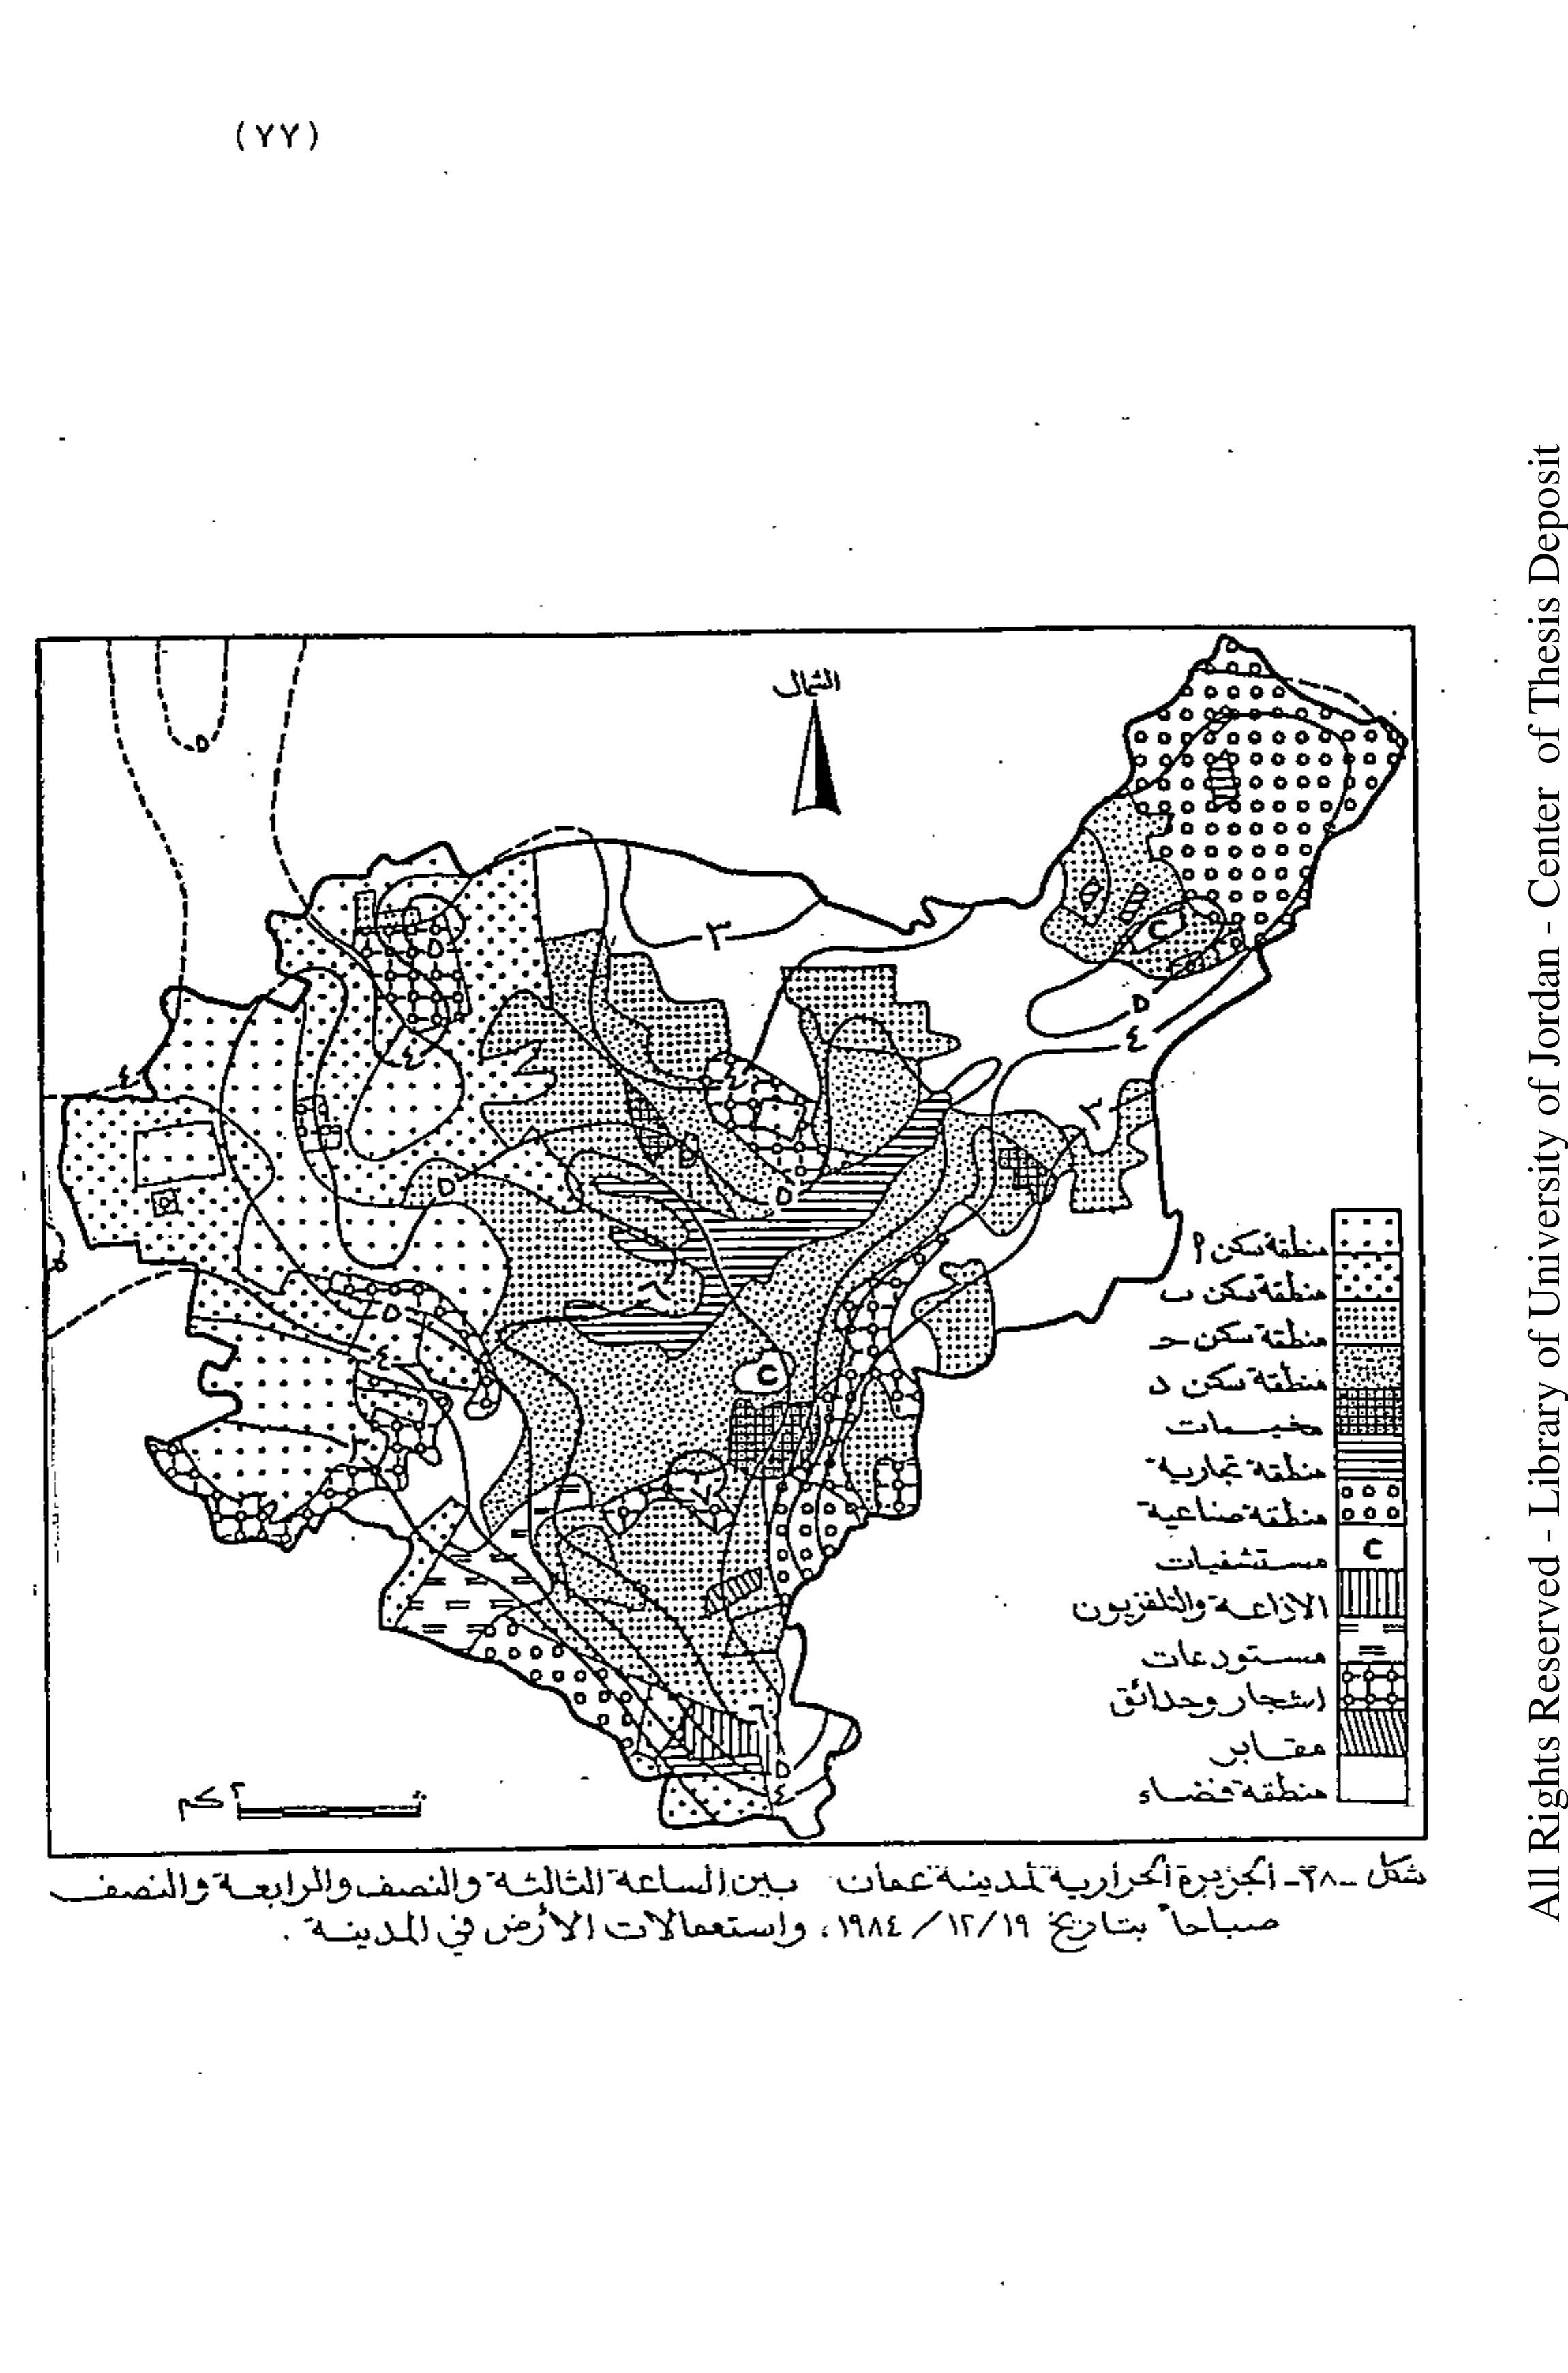 (٧٧)
الشمال
٥
٣
٤
٥
٤
٣
٤
٤
٥
٥
٥
٥
٦
٥
٤
٣
٦
٦
٥
٤
C
C
منطقة سكن أ
منطقة سكن ب
منطقة سكن حـ
منطقة سكن د
مخيمات
منطقة تجارية
منطقة صناعية
C مستشفيات
الاذاعة والتلفزيون
مستودعات
اشجار وحدائق
مقابر
منطقة فضاء
٢ كم
شكل -٣٨- الجزيرة الحرارية لمدينة عمان بين الساعة الثالثة والنصف والرابعة والنصف
صباحاً بتاريخ ١٩/ ١٢/ ١٩٨٤، واستعمالات الأرض في المدينة .
All Rights Reserved - Library of University of Jordan - Center of Thesis Deposit